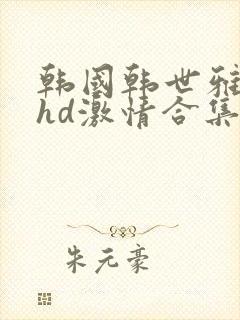 韩国韩世雅
hd激情合集
朱元豪